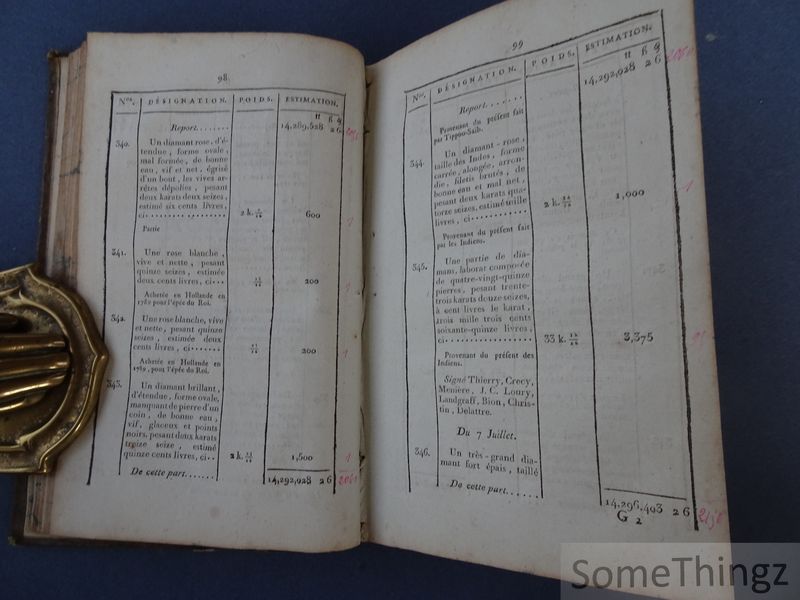 98
Nos. DÉSIGNATION. POIDS. ESTIMATION.
₶ ß ₰
Report........ 14,289,528 2 6
340. Un diamant rose, d'é-
tendue, forme ovale,
mal formée, de bonne
eau, vif et net, égrisé
d'un bout, les vives ar-
rêtes dépolies, pesant
deux karats deux seizes,
estimé six cents livres,
ci.............. 2 k. 2/16 600
Partie
341. Une rose blanche,
vive et nette, pesant
quinze seizes, estimée
deux cents livres, ci... 15/16 200
Achetée en Hollande en
pour l'épée du Roi.
342. Une rose blanche, vive
et nette, pesant quinze
seizes, estimée deux
cents livres, ci....... 15/16 200
Achetée en Hollande en
1789, pour l'épée du Roi.
343. Un diamant brillant,
d'étendue, forme ovale,
manquant de pierre d'un
coin, de bonne eau,
vif, glaceux et points
noirs, pesant deux karats
treize seize, estimé
quinze cents livres, ci.. 2 k. 13/16 1,500
De cette part...... 14,292,028 2 6
99
Nos. DÉSIGNATION. POIDS. ESTIMATION.
₶ ß ₰
Report........ 14,292,028 2 6
Provenant du présent fait
par Tippoo-Saïb.
344. Un diamant-rose,
taille des Indes, forme
carrée, alongée, arron-
die, filetis brutés, de
bonne eau et mal net,
pesant deux karats qua-
torze seizes, estimé mille
livres, ci............ 2 k. 14/16 1,000
Provenant du présent fait
par les Indiens.
345. Une partie de dia-
mans, laborat composée
de quatre-vingt-quinze
pierres, pesant trente-
trois karats douze seizes,
à cent livres le karat,
trois mille trois cents
soixante-quinze livres,
ci................ 33 k. 12/16 3,375
Provenant du présent des
Indiens.
Signé Thierry, Crecy,
Menière, J. C. Loury,
Landgraff, Bion, Chris-
tin, Delattre.
Du 7 Juillet.
346. Un très-grand dia-
mant fort épais, taillé
De cette part...... 14,296,403 2 6
G 2
SomeThingz